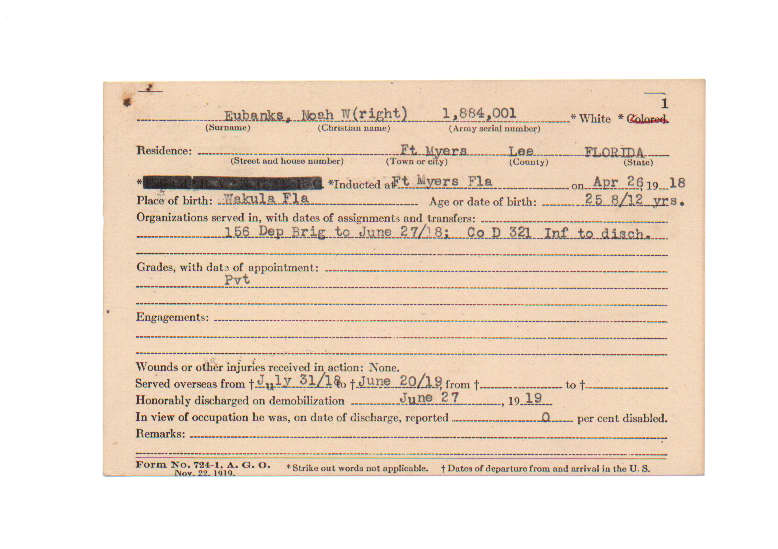 1
Eubanks, Noah W(right) 1,884,001 * White * Colored.
(Surname) (Christian name) (Army serial number)
Residence: Ft Myers Lee FLORIDA
(Street and house number) (Town or city) (County) (State)
* *Inducted at Ft Myers Fla on Apr 26, 19 18
Place of birth: Wakula Fla Age or date of birth: 25 8/12 yrs.
Organizations served in, with dates of assignments and transfers:
156 Dep Brig to June 27/18; Co D 321 Inf to disch.
Grades, with date of appointment:
Pvt
Engagements:
Wounds or other injuries received in action: None.
Served overseas from † July 31/18 to † June 20/19, from † to †
Honorably discharged on demobilization June 27, 19 19
In view of occupation he was, on date of discharge, reported 0 per cent disabled.
Remarks:
Form No. 724-1, A. G. O. * Strike out words not applicable. † Dates of departure from and arrival in the U. S.
Nov. 22, 1919.